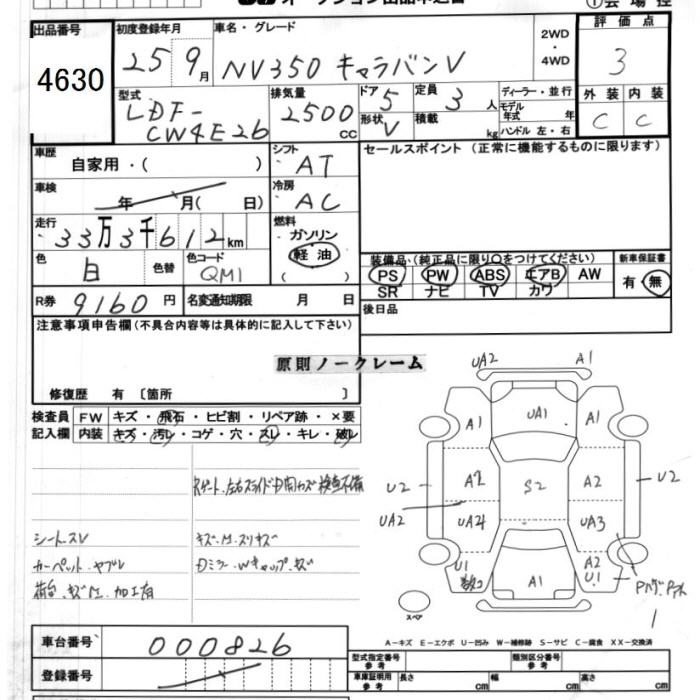 出品番号
4630
初度登録年月
25 9月
車名・グレード
NV350 キャラバンV
2WD
・
4WD
評価点
3
型式
LDF-
CW4E26
排気量
2500
cc
ドア
5
形状
V
定員
3人
積載
kg
ディーラー・並行
モデル
年式 年
ハンドル 左・右
外装 内装
C C
車歴
自家用・( )
シフト
AT
セールスポイント (正常に機能するものに限ります)
車検
年 月( 日)
冷房
AC
走行
33万3千612km
燃料
ガソリン
軽油
( )
色
白
色替
色コード
QM1
装備品・(純正品に限り〇をつけてください)
PS PW ABS エアB AW
SR ナビ TV カワ
新車保証書
有・無
R券 9160円
名変通知期限 月 日
後日品
注意事項申告欄(不具合内容等は具体的に記入して下さい)
原則ノークレーム
修復歴 有〔箇所 〕
検査員
記入欄
FW キズ・飛石・ヒビ割・リペア跡・×要
内装 キズ・汚レ・コゲ・穴・スレ・キレ・破レ
シートスレ
カーペットヤブレ
荷台・キズ凹・加工有
キズ・凹・スリキズ
Dミラー・Wキャップ・キズ
UA2 A1
A1 UA1 A1
U2 A2 S2 A2 U2
UA2 UA4 UA3
U1 A1 A2
U1
1
スペア
A-キズ E-エクボ U-凹み W-補修跡 S-サビ C-腐食 XX-交換済
車台番号
000826
登録番号
型式指定番号
参考
類別区分番号
参考
車庫証明用
参考
長さ cm 幅 cm 高さ cm